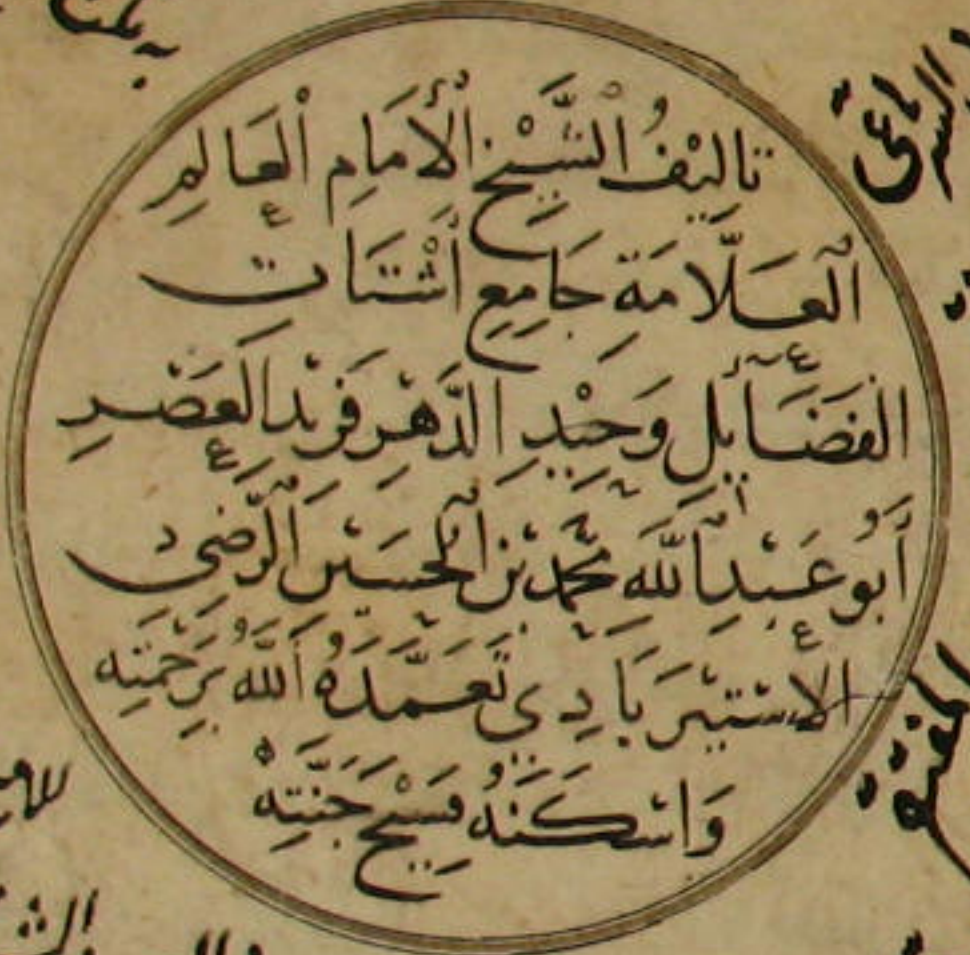 تَالِيْفُ الشَّيْخِ الْأِمَامِ الْعَالِمِ
الْعَلَّامَةِ جَامِعِ أَشْتَاتِ
الفَضَآئِلِ وَحِيْدِ الدَّهْرِ فَرِيْدِ الْعَصْرِ
أَبُو عَبْدِ اللَّهِ مُحَمَّد بْنِ الْحُسَيْنِ الرَّضِىِّ
الإسْتِيْرَبَادِى تَعَمَّدَهُ اللَّهُ بِرَحْمَتِهِ
وَاسْكَنَهُ فَسِيْحَ جَنَّتِهْ